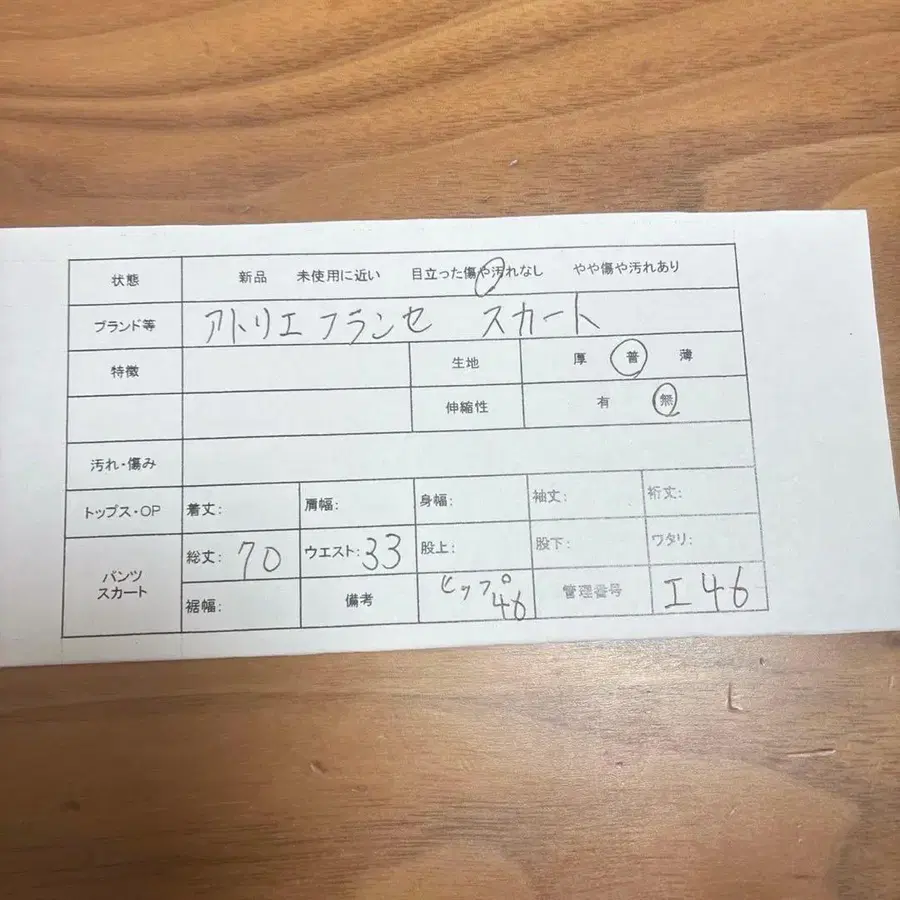 状態 新品 未使用に近い 目立った傷や汚れなし やや傷や汚れあり
ブランド等 アトリエフランセ スカート
特徴 生地 厚 普 薄
伸縮性 有 無
汚れ・傷み
トップス・OP 着丈: 肩幅: 身幅: 袖丈: 裄丈:
パンツ スカート 総丈: 70 ウエスト: 33 股上: 股下: ワタリ:
裾幅: 備考 ヒップ 46 管理番号 エ46